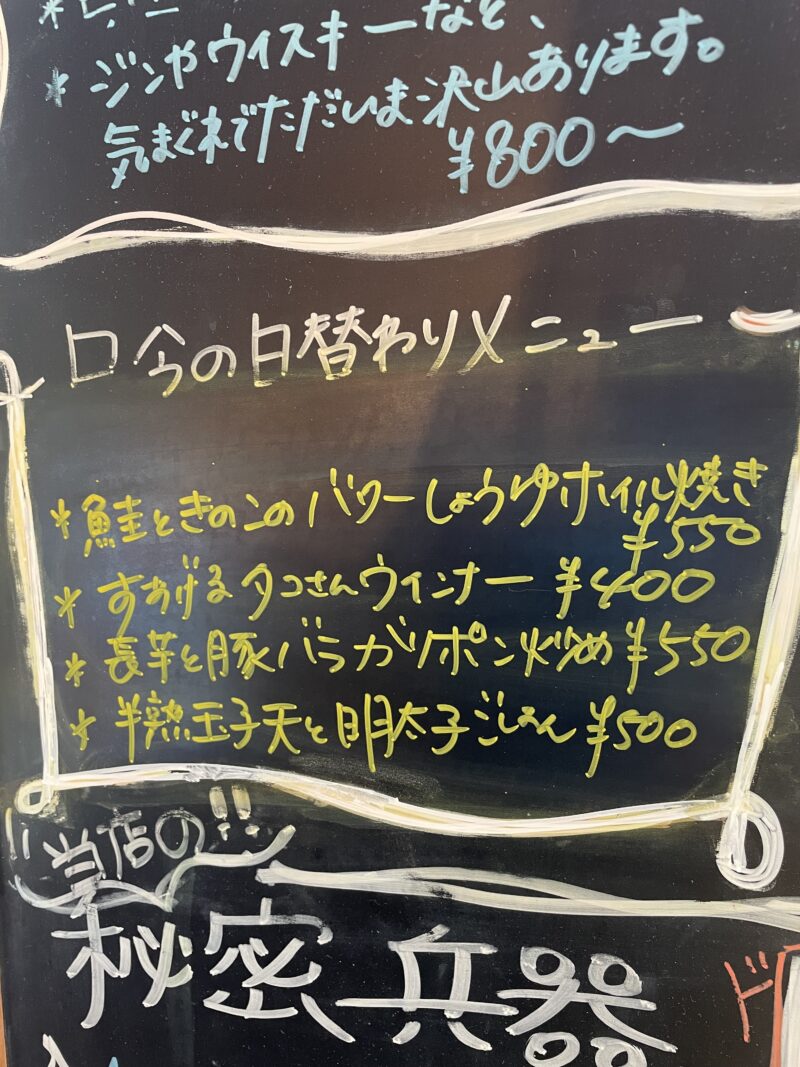 * ジンやウイスキーなど、
気まぐれでただいま沢山あります。
¥800〜
口今の日替わりメニュー
*鮭ときのこのバターしょうゆホイル焼き
¥550
*すあげるタコさんウインナー ¥400
*長芋と豚バラガリポン炒め ¥550
*半熟玉子天と明太子ごはん ¥500
当店の!!
秘密兵器
ド